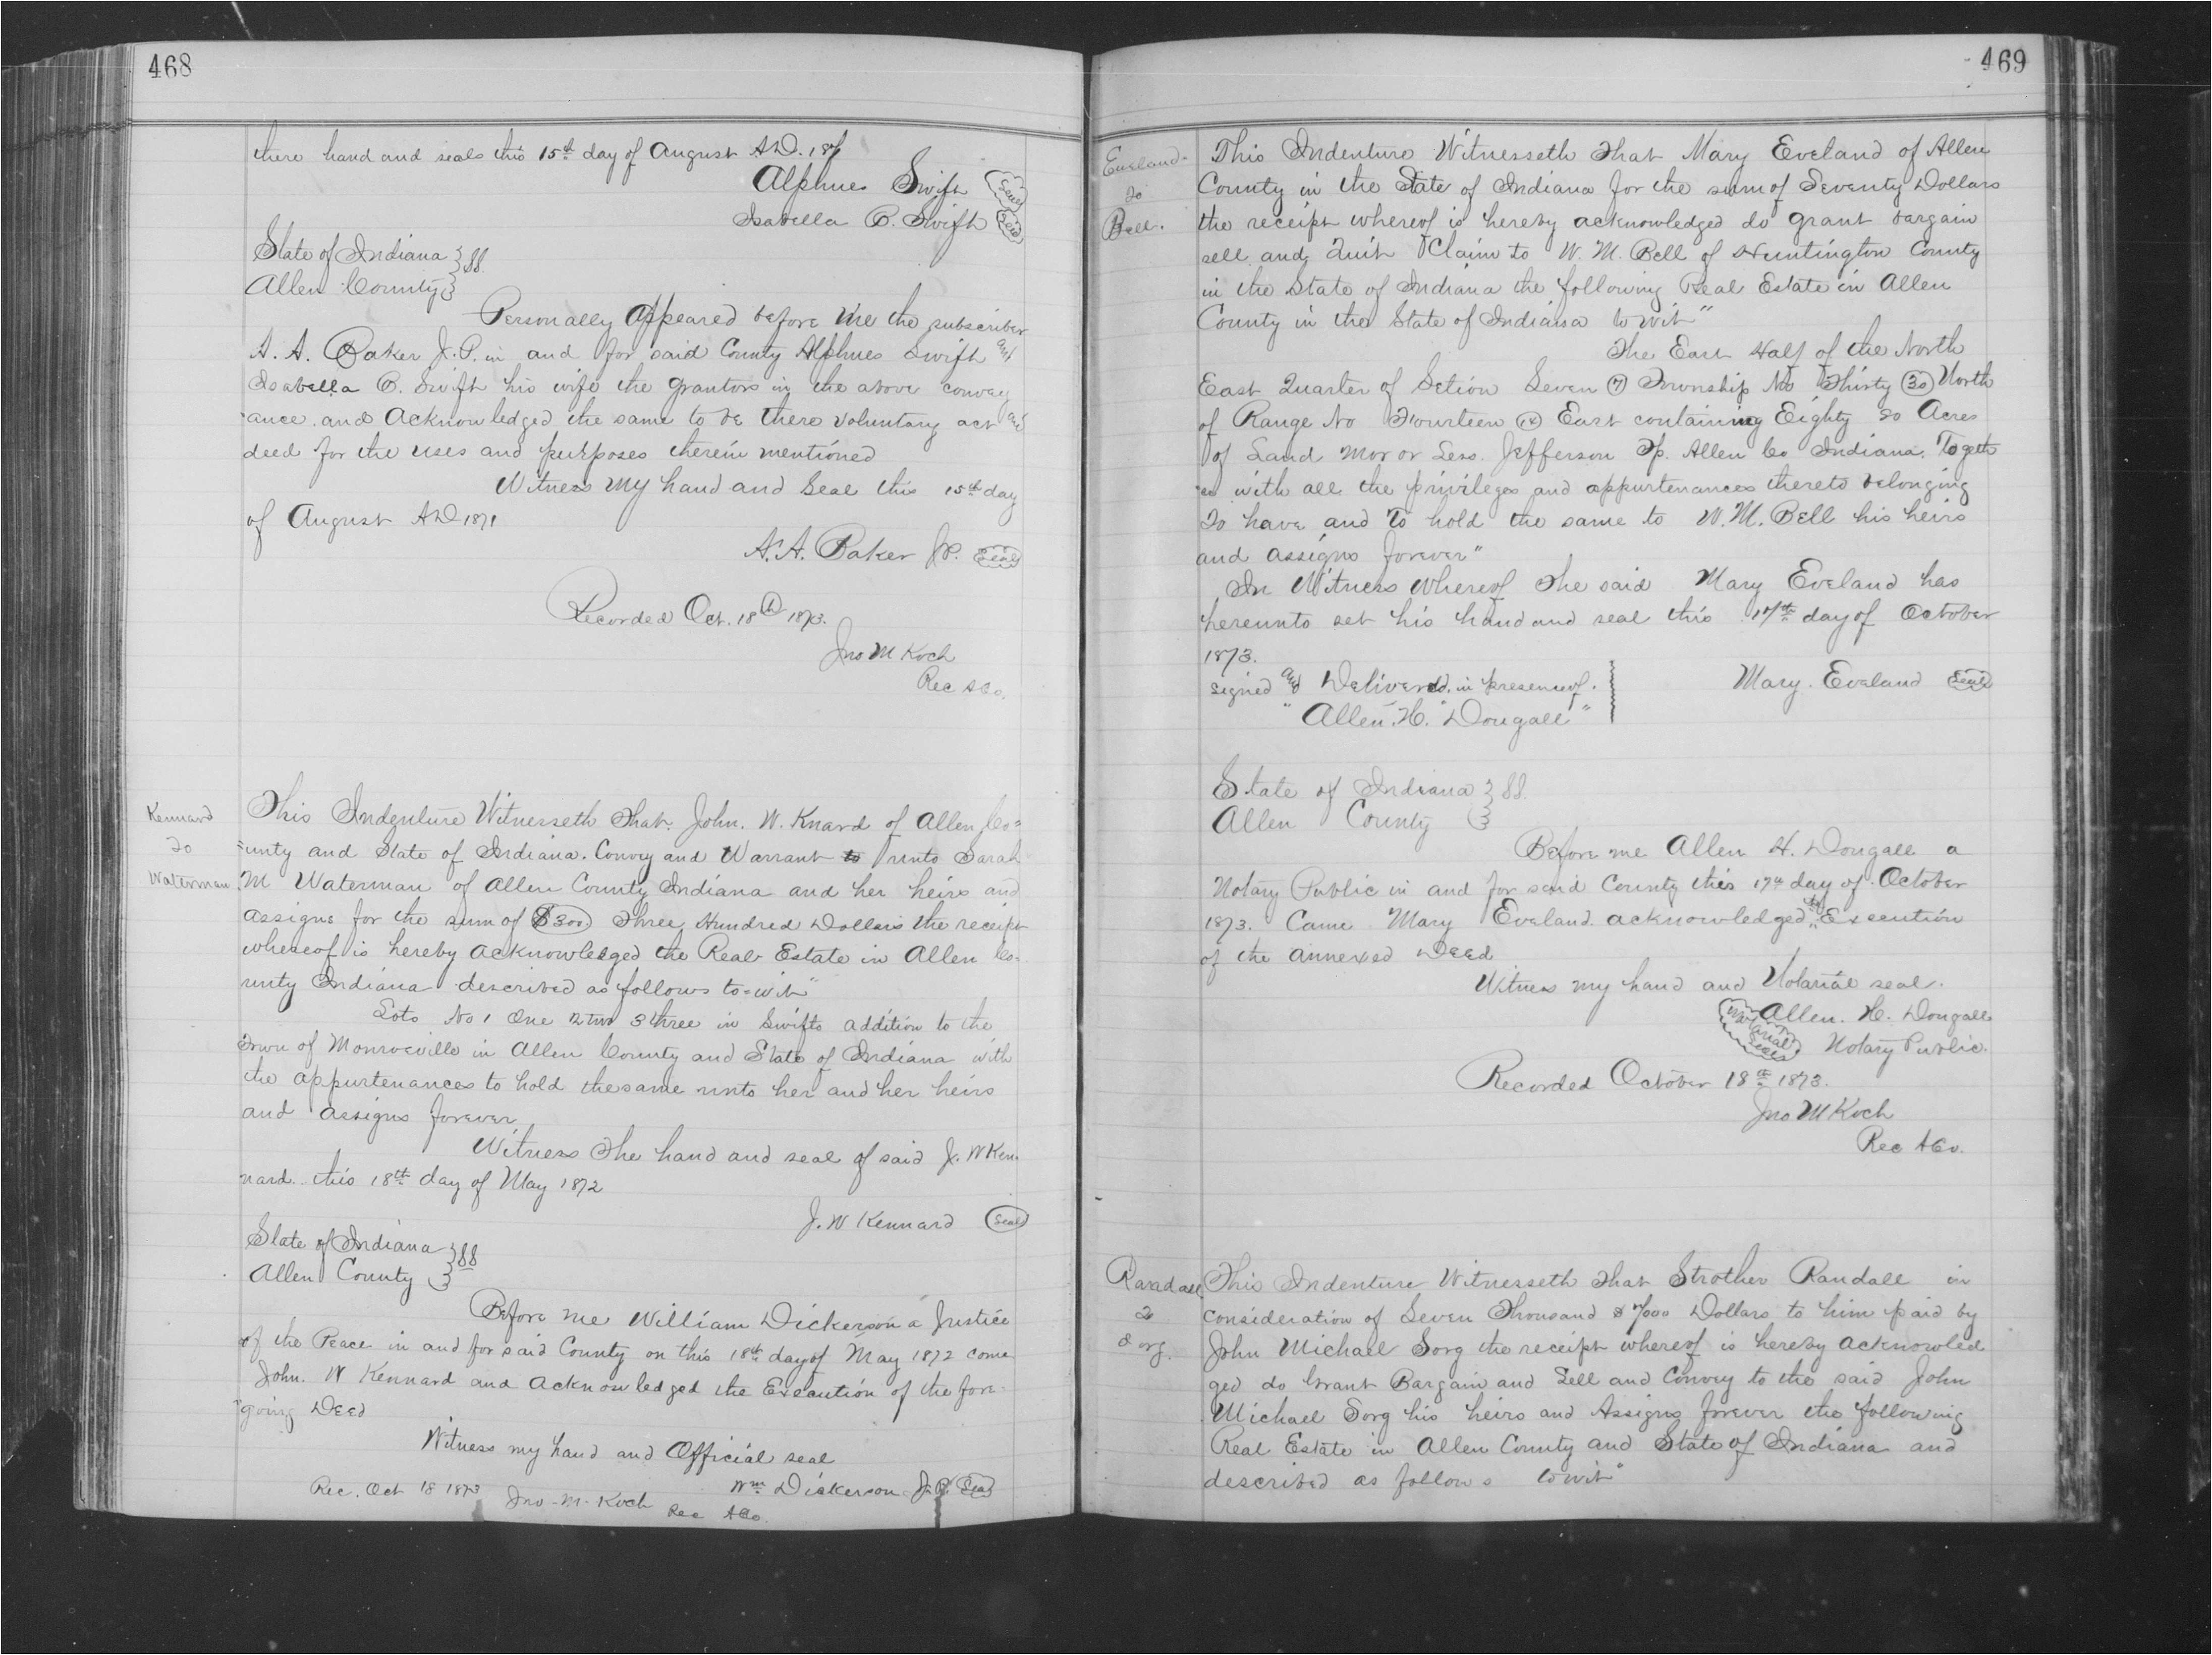 468
there hand and seals this 15th day of August AD. 187
Alphues Swift Seal
Isabella C. Swift Seal
State of Indiana } SS
Allen County }
Personally Appeared before me the subscriber
A. A. Baker J.P. in and for said County Alphues Swift and
Isabella C. Swift his wife the grantors in the above convey
ance and Acknowledged the same to be there voluntary act and
deed for the uses and purposes therein mentioned
Witness my hand and Seal this 15th day
of August AD 1871
A. A. Baker J.P. Seal
Recorded Oct. 18th 1873.
Jno M Koch
Rec A Co.
Kennard
To
Waterman
This Indenture Witnesseth That John. W. Knard of Allen Co=
=unty and State of Indiana. Convey and Warrant to unto Sarah
M Waterman of Allen County Indiana and her heirs and
assigns for the sum of $300 Three Hundred Dollars the receipt
whereof is hereby acknowledged the Real Estate in Allen Co-
unty Indiana described as follows to=wit"
Lots No 1 One 2 two 3 three in Swifts addition to the
Town of Monroeville in Allen County and State of Indiana with
the appurtenances to hold the same unto her and her heirs
and assigns forever
Witness The hand and seal of said J. W Ken-
nard this 18th day of May 1872
J. W Kennard Seal
State of Indiana } SS
Allen County }
Before me William Dickerson a Justice
of the Peace in and for said County on this 18th day of May 1872 come
John. W Kennard and acknowledged the Execution of the fore-
going Deed
Witness my hand and Official seal
Wm Dickerson J.P. Seal
Rec. Oct 18 1873 Jno. M. Koch Rec A Co.
469
Eveland
To
Bell.
This Indenture Witnesseth That Mary Eveland of Allen
County in the State of Indiana for the sum of Seventy Dollars
the receipt whereof is hereby acknowledged do grant bargain
sell and Quit Claim to W. M. Bell of Huntington County
in the State of Indiana the following Real Estate in Allen
County in the State of Indiana to wit"
The East Half of the North
East Quarter of Setion Seven (7) Township No Thirty (30) North
of Range No Fourteen (14) East containing Eighty 80 Acres
of Land mor or Less. Jefferson Tp. Allen Co Indiana. Togeth
er with all the privileges and appurtenances thereto belonging
To have and To hold the same to W. M. Bell his heirs
and assigns forever"
In Witness Whereof The said Mary Eveland has
hereunto set his hand and seal this 17th day of October
1873.
signed and Delivered. in presence of.
Mary. Eveland Seal
"Allen. H. Dougall"
State of Indiana } SS.
Allen County }
Before me Allen H. Dougall a
Notary Public in and for said County this 17th day of October
1873. Came Mary Eveland acknowledged the Execution
of the annexed Deed
Witness my hand and Notarial seal.
Allen. H. Dougall
Notarial Seal Notary Public.
Recorded October 18th 1873.
Jno M Koch
Rec A Co.
Randall
To
Sorg.
This Indenture Witnesseth That Strother Randall in
consideration of Seven Thousand $7000 Dollars to him paid by
John Michael Sorg the receipt whereof is hereby acknowled
ged do Grant Bargain and Sell and Convey to the said John
Michael Sorg his heirs and Assigns forever the following
Real Estate in Allen County and State of Indiana and
described as follows to wit"